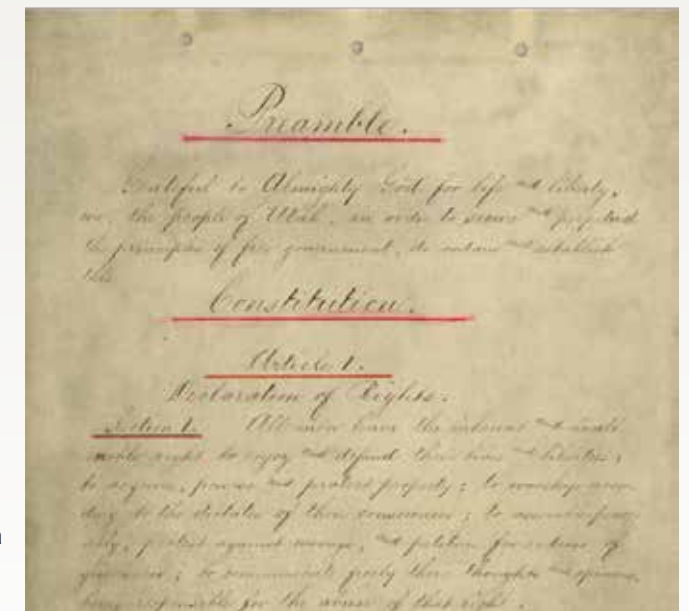 Preamble.
Grateful to Almighty God for life and liberty,
we, the people of Utah, in order to secure and perpetuate
the principles of free government, do ordain and establish
this
Constitution.
Article 1.
Declaration of Rights.
Section 1. All men have the inherent and inali
enable right to enjoy and defend their lives and liberties;
to acquire, possess and protect property; to worship accor
ding to the dictates of their consciences; to assemble peace
ably, protest against wrongs, and petition for redress of
grievances; to communicate freely their thoughts and opinions,
being responsible for the abuse of that right.
n